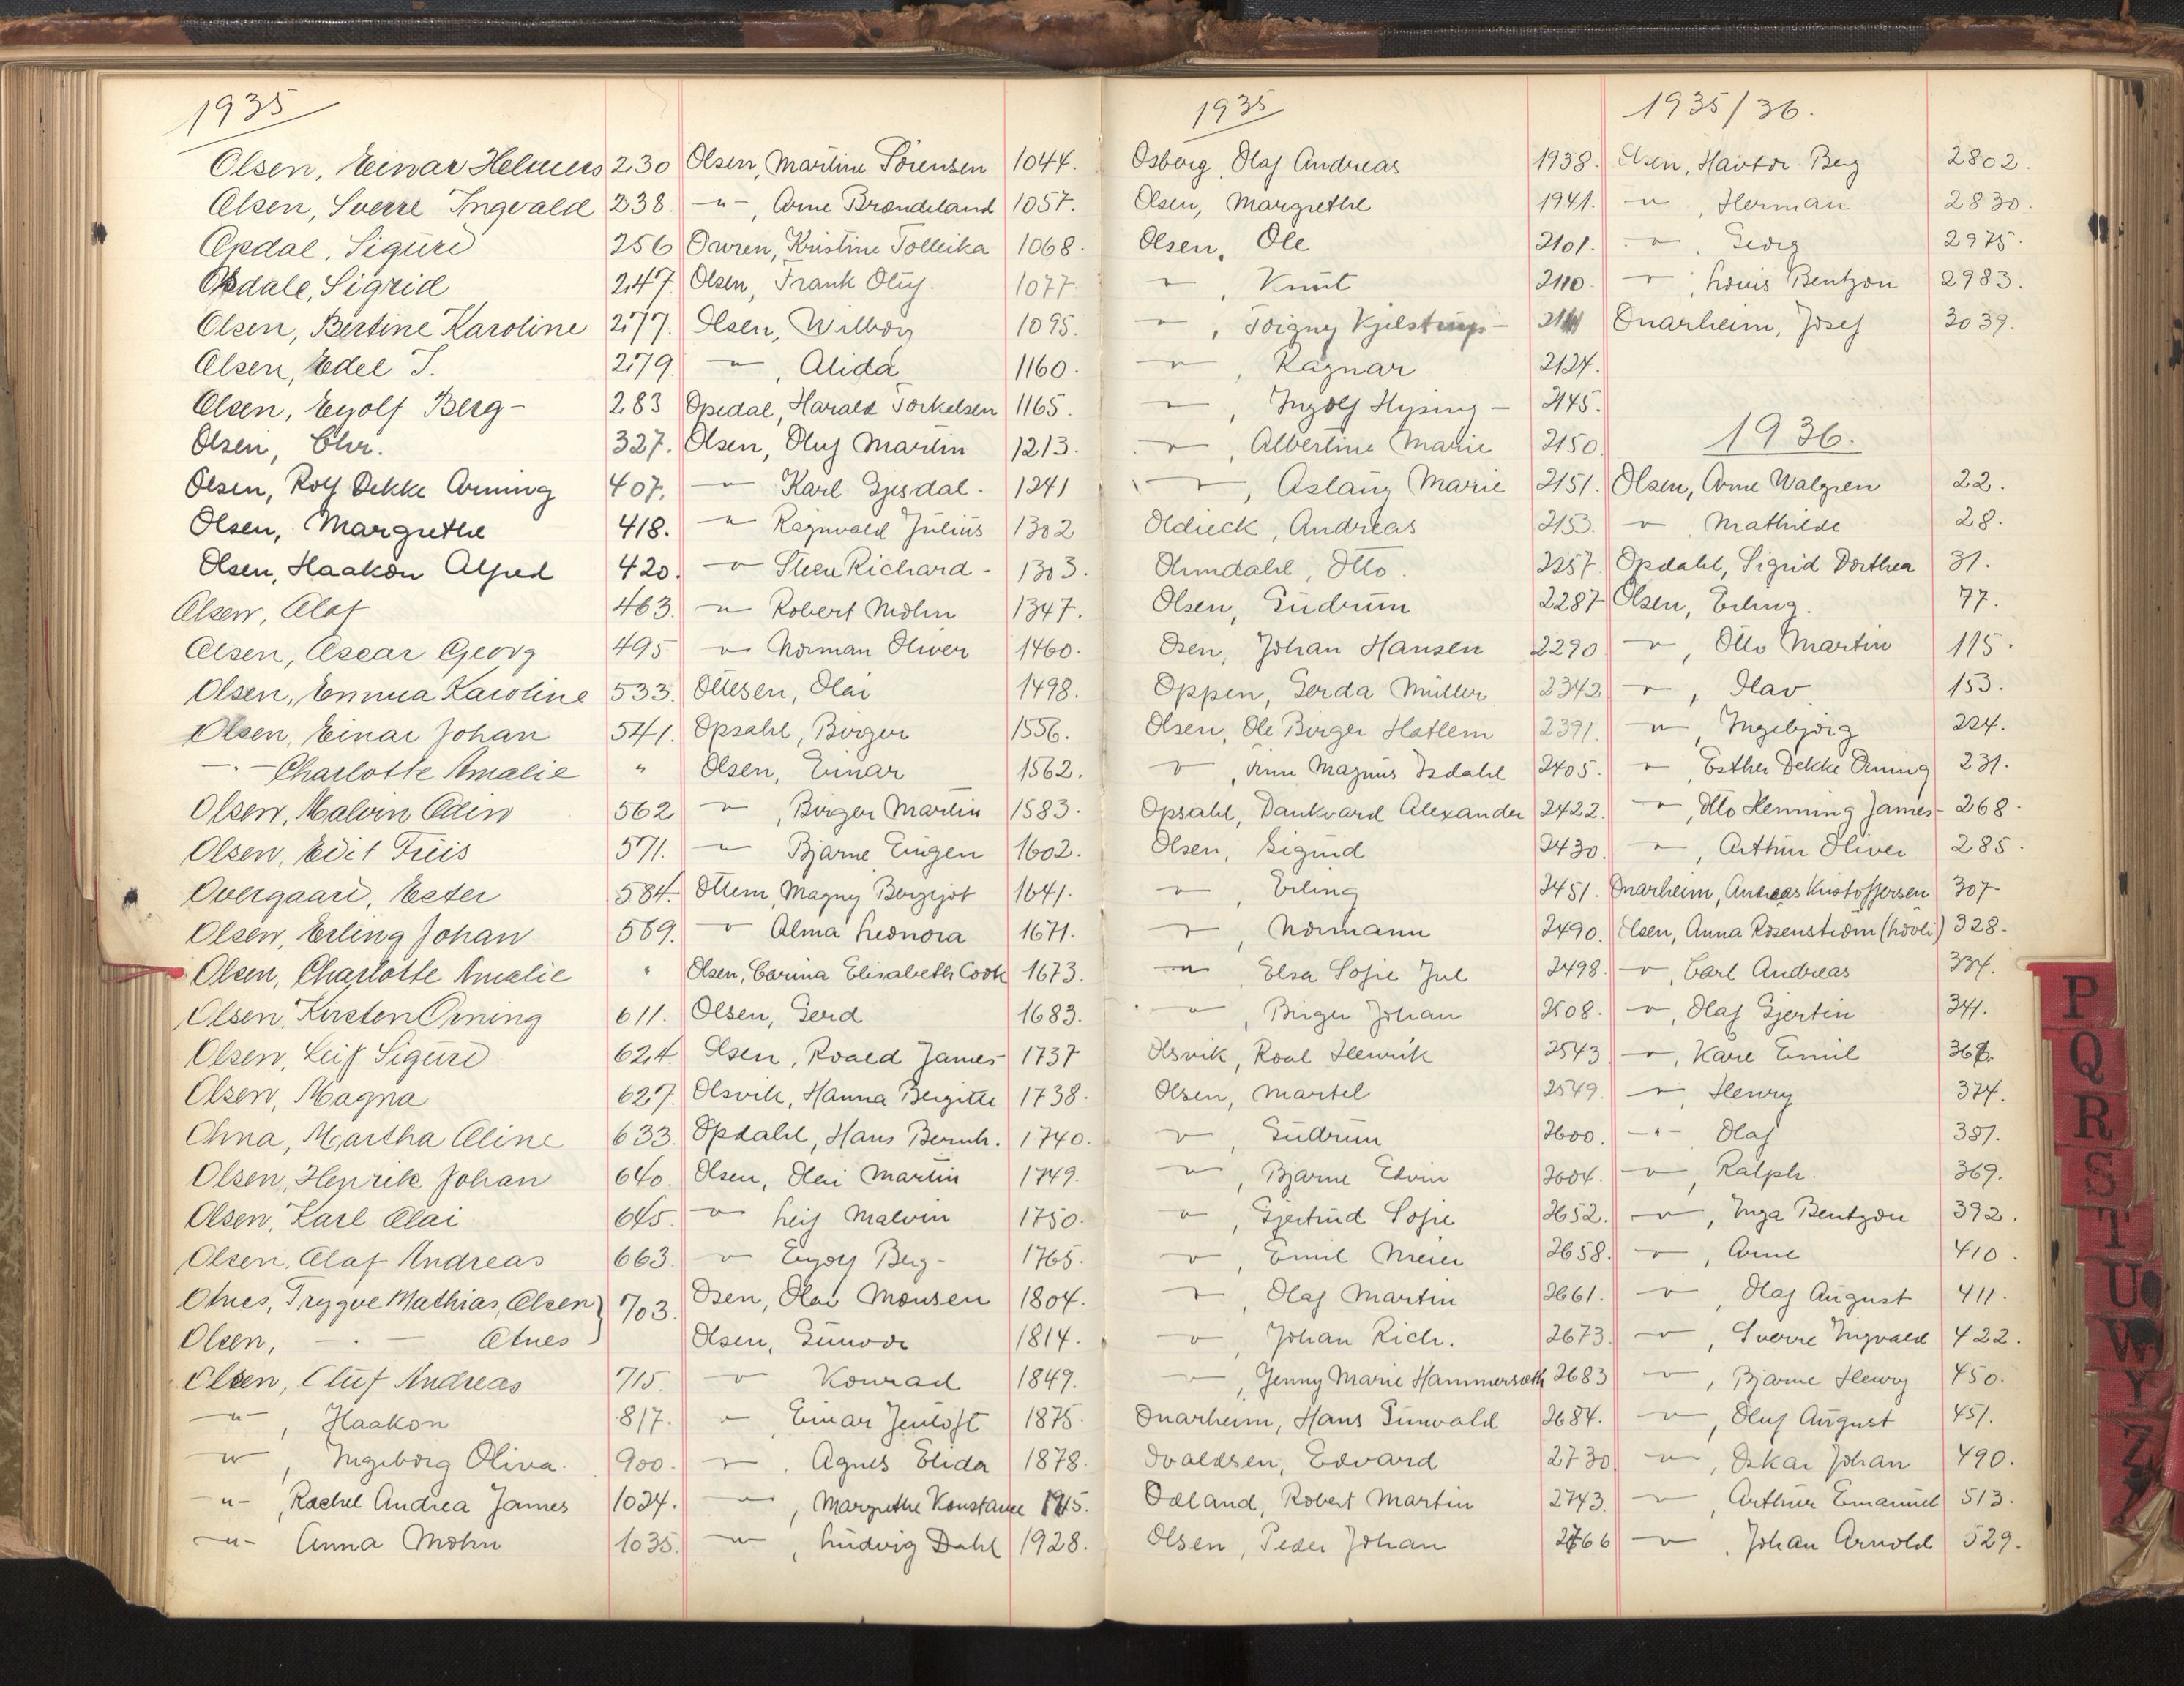 1935
Olsen, Einar Helmers 230
Olsen, Sverre Ingvald 238.
Opdal, Sigurd 256
Opdale, Sigrid 247.
Olsen, Bertine Karoline 277.
Olsen, Edel T. 279.
Olsen, Eyolf Berg- 283
Olsen, Chr. 327.
Olsen, Rolf Dekke Orning 407.
Olsen, Margrethe 418.
Olsen, Haakon Alfred 420.
Olsen, Olaf 463.
Olsen, Oscar Georg 495
Olsen, Emma Karoline 533.
Olsen, Einar Johan 541.
-"- Charlotte Amalie "
Olsen, Malvin Odin 562
Olsen, Edit Friis 571.
Overgaard, Ester 584.
Olsen, Erling Johan 589.
Olsen, Charlotte Amalie "
Olsen, Kirsten Orning 611.
Olsen, Leif Sigurd 624.
Olsen, Magna 627.
Ohna, Martha Oline 633.
Olsen, Henrik Johan 640.
Olsen, Karl Olai 645.
Olsen, Olaf Andreas 663.
Otnes, Trygve Mathias, Olsen } 703.
Olsen, - " - Otnes
Olsen, Oluf Andreas 715.
-"-, Haakon 817.
-"-, Ingeborg Oliva. 900.
-"-, Rachel Andrea James 1024.
-"- Anna Mohn 1035.
Olsen, Martine Sörensen 1044.
-"-, Arne Brondeland 1057.
Owren, Kristine Tolleika 1068.
Olsen, Frank Oluf. 1077.
Olsen, Wilborg 1095.
-"-, Alida 1160.
Opedal, Harald Torkelsen 1165.
Olsen, Oluf Martin 1213.
-"- Karl Gjesdal- 1241
-"- Ragnvald Julius 1302
-"- Steen Richard- 1303.
-"- Robert Mohn 1347.
-"- Norman Oliver 1460.
Ottesen, Olai 1498.
Opsahl, Birger 1556.
Olsen, Einar 1562.
-"-, Birger Martin 1583.
-"- Bjarne Eingen 1602.
Ottem, Magny Bergljot 1641.
-"- Alma Leonora 1671.
Olsen, Carina Elisabeth Cook 1673.
Olsen, Gerd 1683.
Olsen, Roald James- 1737
Olsvik, Hanna Bergitte 1738.
Opdahl, Hans Bernh. 1740.
Olsen, Olai Martin 1749.
-"- Leif Malvin 1750.
-"- Eyolf Berg- 1765.
Osen, Olav Monsen 1804.
Olsen, Gunvor 1814.
-"- Konrad 1849.
-"- Einar Jentoft 1875.
-"-, Agnes Elida 1878.
-"-, Margrethe Konstance 1915.
-"-, Ludvig Dahl 1928.
1935
Osborg, Olaf Andreas 1938.
Olsen, Margrethe 1941.
Olsen, Ole 2101.
-"-, Knut 2110.
-"-, Torgny Kjelstrup- 2111
-"-, Ragnar 2124.
-"-, Ingolf Hysing- 2145.
-"-, Albertine Marie 2150.
-"-, Aslaug Marie 2151.
Oldieck, Andreas 2153.
Olmdahl, Otto. 2257.
Olsen, Gudrun 2287
Osen, Johan Hansen 2290
Oppen, Gerda Müller 2342
Olsen, Ole Birger Hatlem 2391.
-"-, Finn Magnus Isdahl 2405.
Opsahl, Dankvard Alexander 2422.
Olsen, Sigurd 2430.
-"-, Erling 2451.
-"-, Normann 2490.
-"- Elsa Sofie Jul 2498.
-"-, Birger Johan 2508.
Olsvik, Roal Henrik 2543
Olsen, Martel 2549.
-"-, Gudrun 2600.
-"-, Bjarne Edvin 2604.
-"-, Gjertrud Sofie 2652.
-"-, Emil Meier 2658.
-"-, Olaf Martin 2661.
-"-, Johan Rich. 2673.
-"-, Jenny Marie Hammerseth 2683
Onarheim, Hans Gunvald 2684.
Ovaldsen, Edvard 2730
Odland, Robert Martin 2743.
Olsen, Peder Johan 2766
1935/36.
Olsen, Havtor Berg 2802.
-"-, Herman 2830.
-"-, Georg 2975.
-"-, Louis Bentzon 2983.
Onarheim, Josef 3039.
1936.
Olsen, Arne Walgren 22.
-"- Mathilde 28.
Opdahl, Sigrid Dorthea 31.
Olsen, Erling. 77.
-"-, Otto Martin 115.
-"-, Olav 153.
-"-, Ingebjörg 224.
-"-, Esther Dekke Orning 231.
-"-, Otto Henning James- 268.
-"-, Arthur Oliver 285.
Onarheim, Andreas Kristoffersen 307
Olsen, Anna Rosenström (Lövli) 328.
-"-, Carl Andreas 334.
-"-, Olaf Gjertin 341.
-"-, Kåre Emil 366.
-"-, Henry 374.
-"- Olaf 381.
-"-, Ralph. 369.
-"-, Inga Bentzon 392.
-"-, Arne 410.
-"-, Olaf August 411.
-"-, Sverre Ingvald 422.
-"-, Bjarne Henry 450.
-"-, Oluf August 451.
-"-, Oskar Johan 490.
-"-, Arthur Emanuel 513.
-"-, Johan Arnold 529.
P
Q
R
S
T
U
W
Y
Z